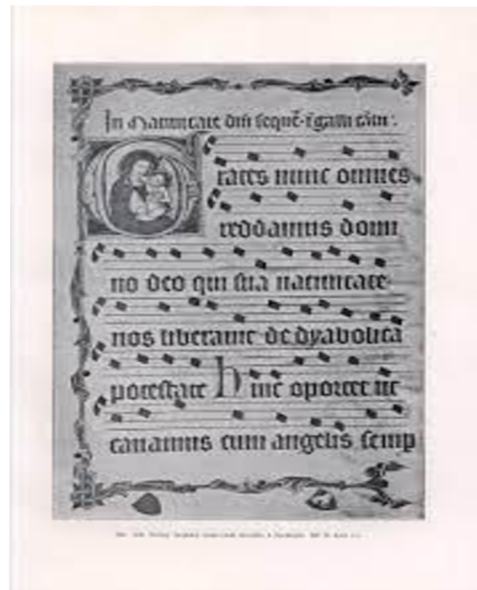 In Natiuitate dn̄i sequē. ī galli cātu:
Grates nunc omnes
reddamus domi
no deo qui sua natiuitate
nos liberauit de dyabolica
potestate Huic oportet ut
canamus cum angelis semp